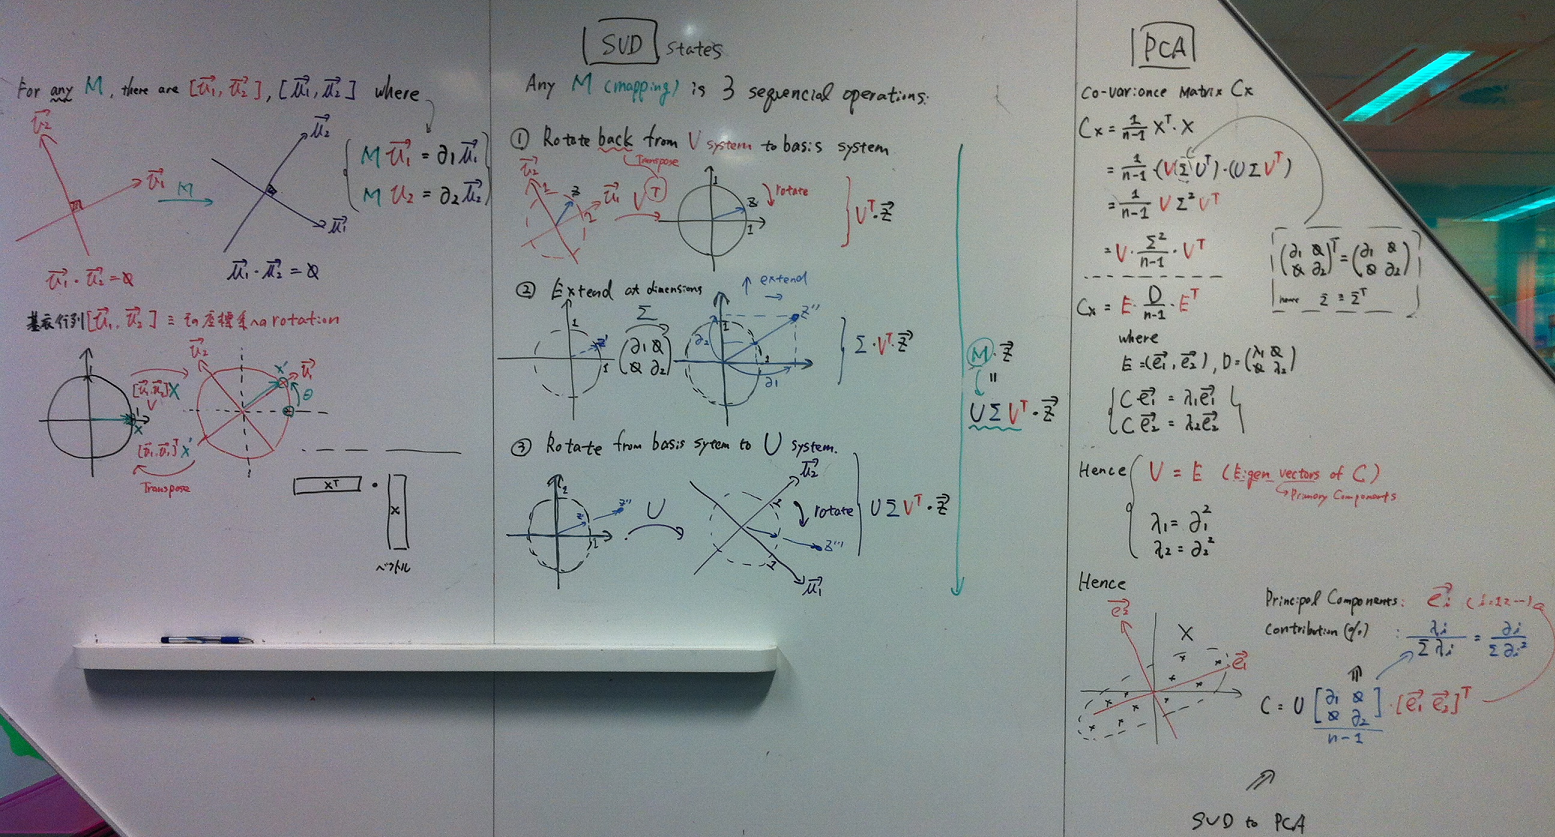 For any M, there are [v⃗1, v⃗2], [u⃗1, u⃗2] where
v⃗2
v⃗1
M
u⃗2
u⃗1
M v⃗1 = ∂1 u⃗1
M v2 = ∂2 u⃗2
v⃗1 · v⃗2 = 0
u⃗1 · u⃗2 = 0
[v⃗1, v⃗2] ≡
rotation
[v⃗1, v⃗2] X
V
X
[v⃗1, v⃗2]ᵀ X'
Transpose
v⃗2
X'
v⃗1
θ
Xᵀ · X
ベクトル
SVD states
Any M (mapping) is 3 sequencial operations:
① Rotate back from V system to basis system
Transpose
v⃗2
v⃗1
Z
Vᵀ
1
Z
1
rotate
Vᵀ · Z⃗
② Extend at dimensions
extend
1
Z'
1
Σ
(∂1 0
0 ∂2)
∂2
∂1
Z''
Σ · Vᵀ · Z⃗
③ Rotate from basis sytem to U system.
Z''
U
u⃗2
rotate
Z'''
u⃗1
U Σ Vᵀ · Z⃗
M · Z⃗
=
U Σ Vᵀ · Z⃗
PCA
Co-variance Matrix Cx
Cx = 1/(n-1) Xᵀ · X
= 1/(n-1) · (V(Σ)Uᵀ) · (U Σ Vᵀ)
= 1/(n-1) V Σ² Vᵀ
= V · Σ²/(n-1) · Vᵀ
(∂1 0
0 ∂2)ᵀ = (∂1 0
0 ∂2)
hence Σ ≡ Σᵀ
Cx = E · D/(n-1) · Eᵀ
where
E = (e⃗1, e⃗2), D = (λ1 0
0 λ2)
C e⃗1 = λ1 e⃗1
C e⃗2 = λ2 e⃗2
Hence
V = E (Eigen vectors of C)
Primary Components
λ1 = ∂1²
λ2 = ∂2²
Hence
e⃗2
X
e⃗1
Principal Components: e⃗i
Contribution (%) : λi/Σλi = ∂i/Σ∂i²
C = U [∂1 0
0 ∂2]/(n-1) · [e⃗1 e⃗2]ᵀ
SVD to PCA